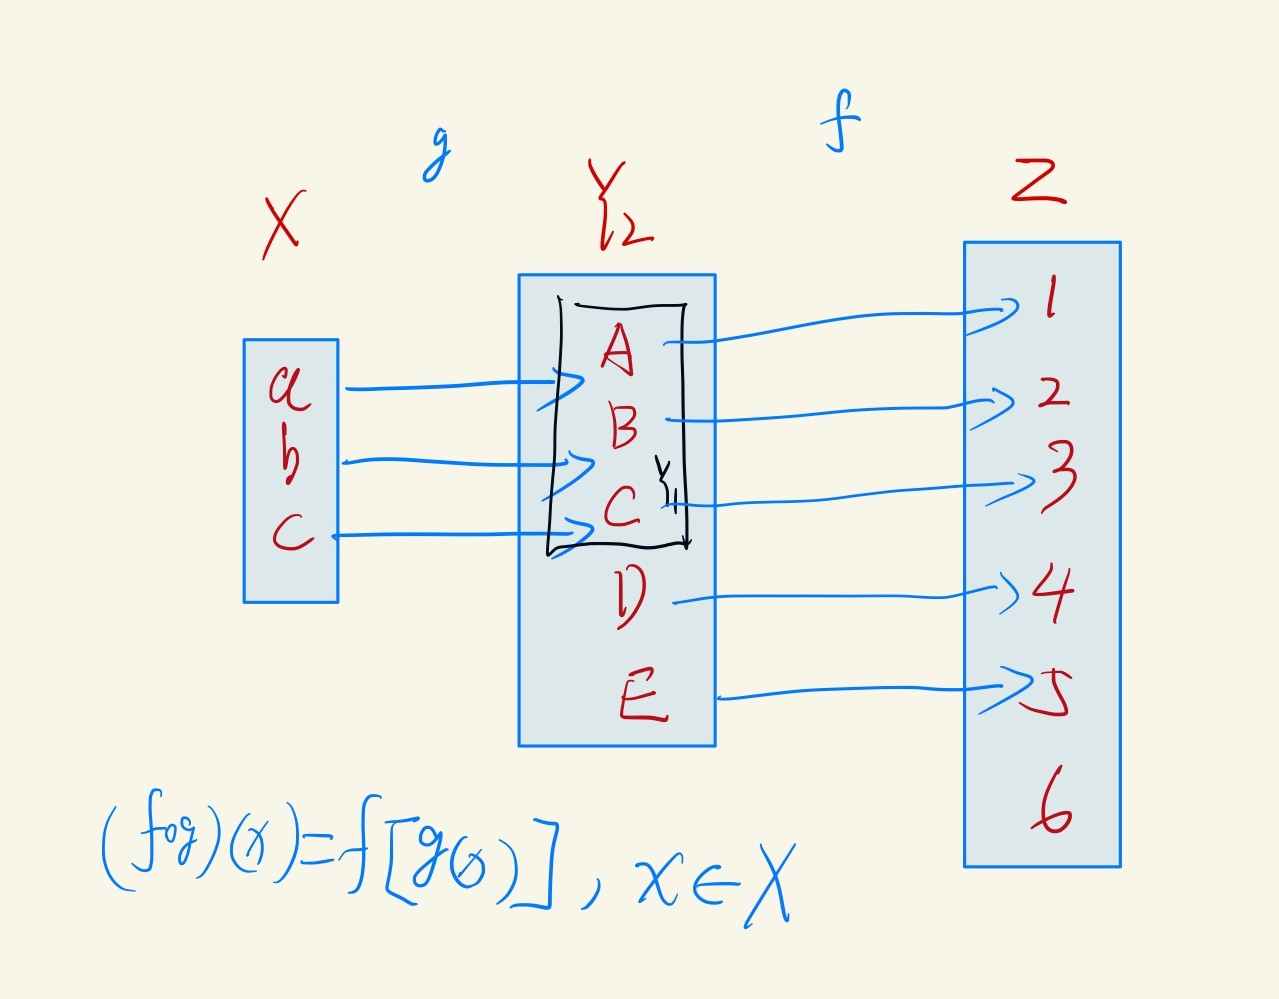 g
f
X
Y₂
Z
a
b
c
A
B
C
Y₁
D
E
1
2
3
4
5
6
(f∘g)(x)=f[g(x)], x∈X